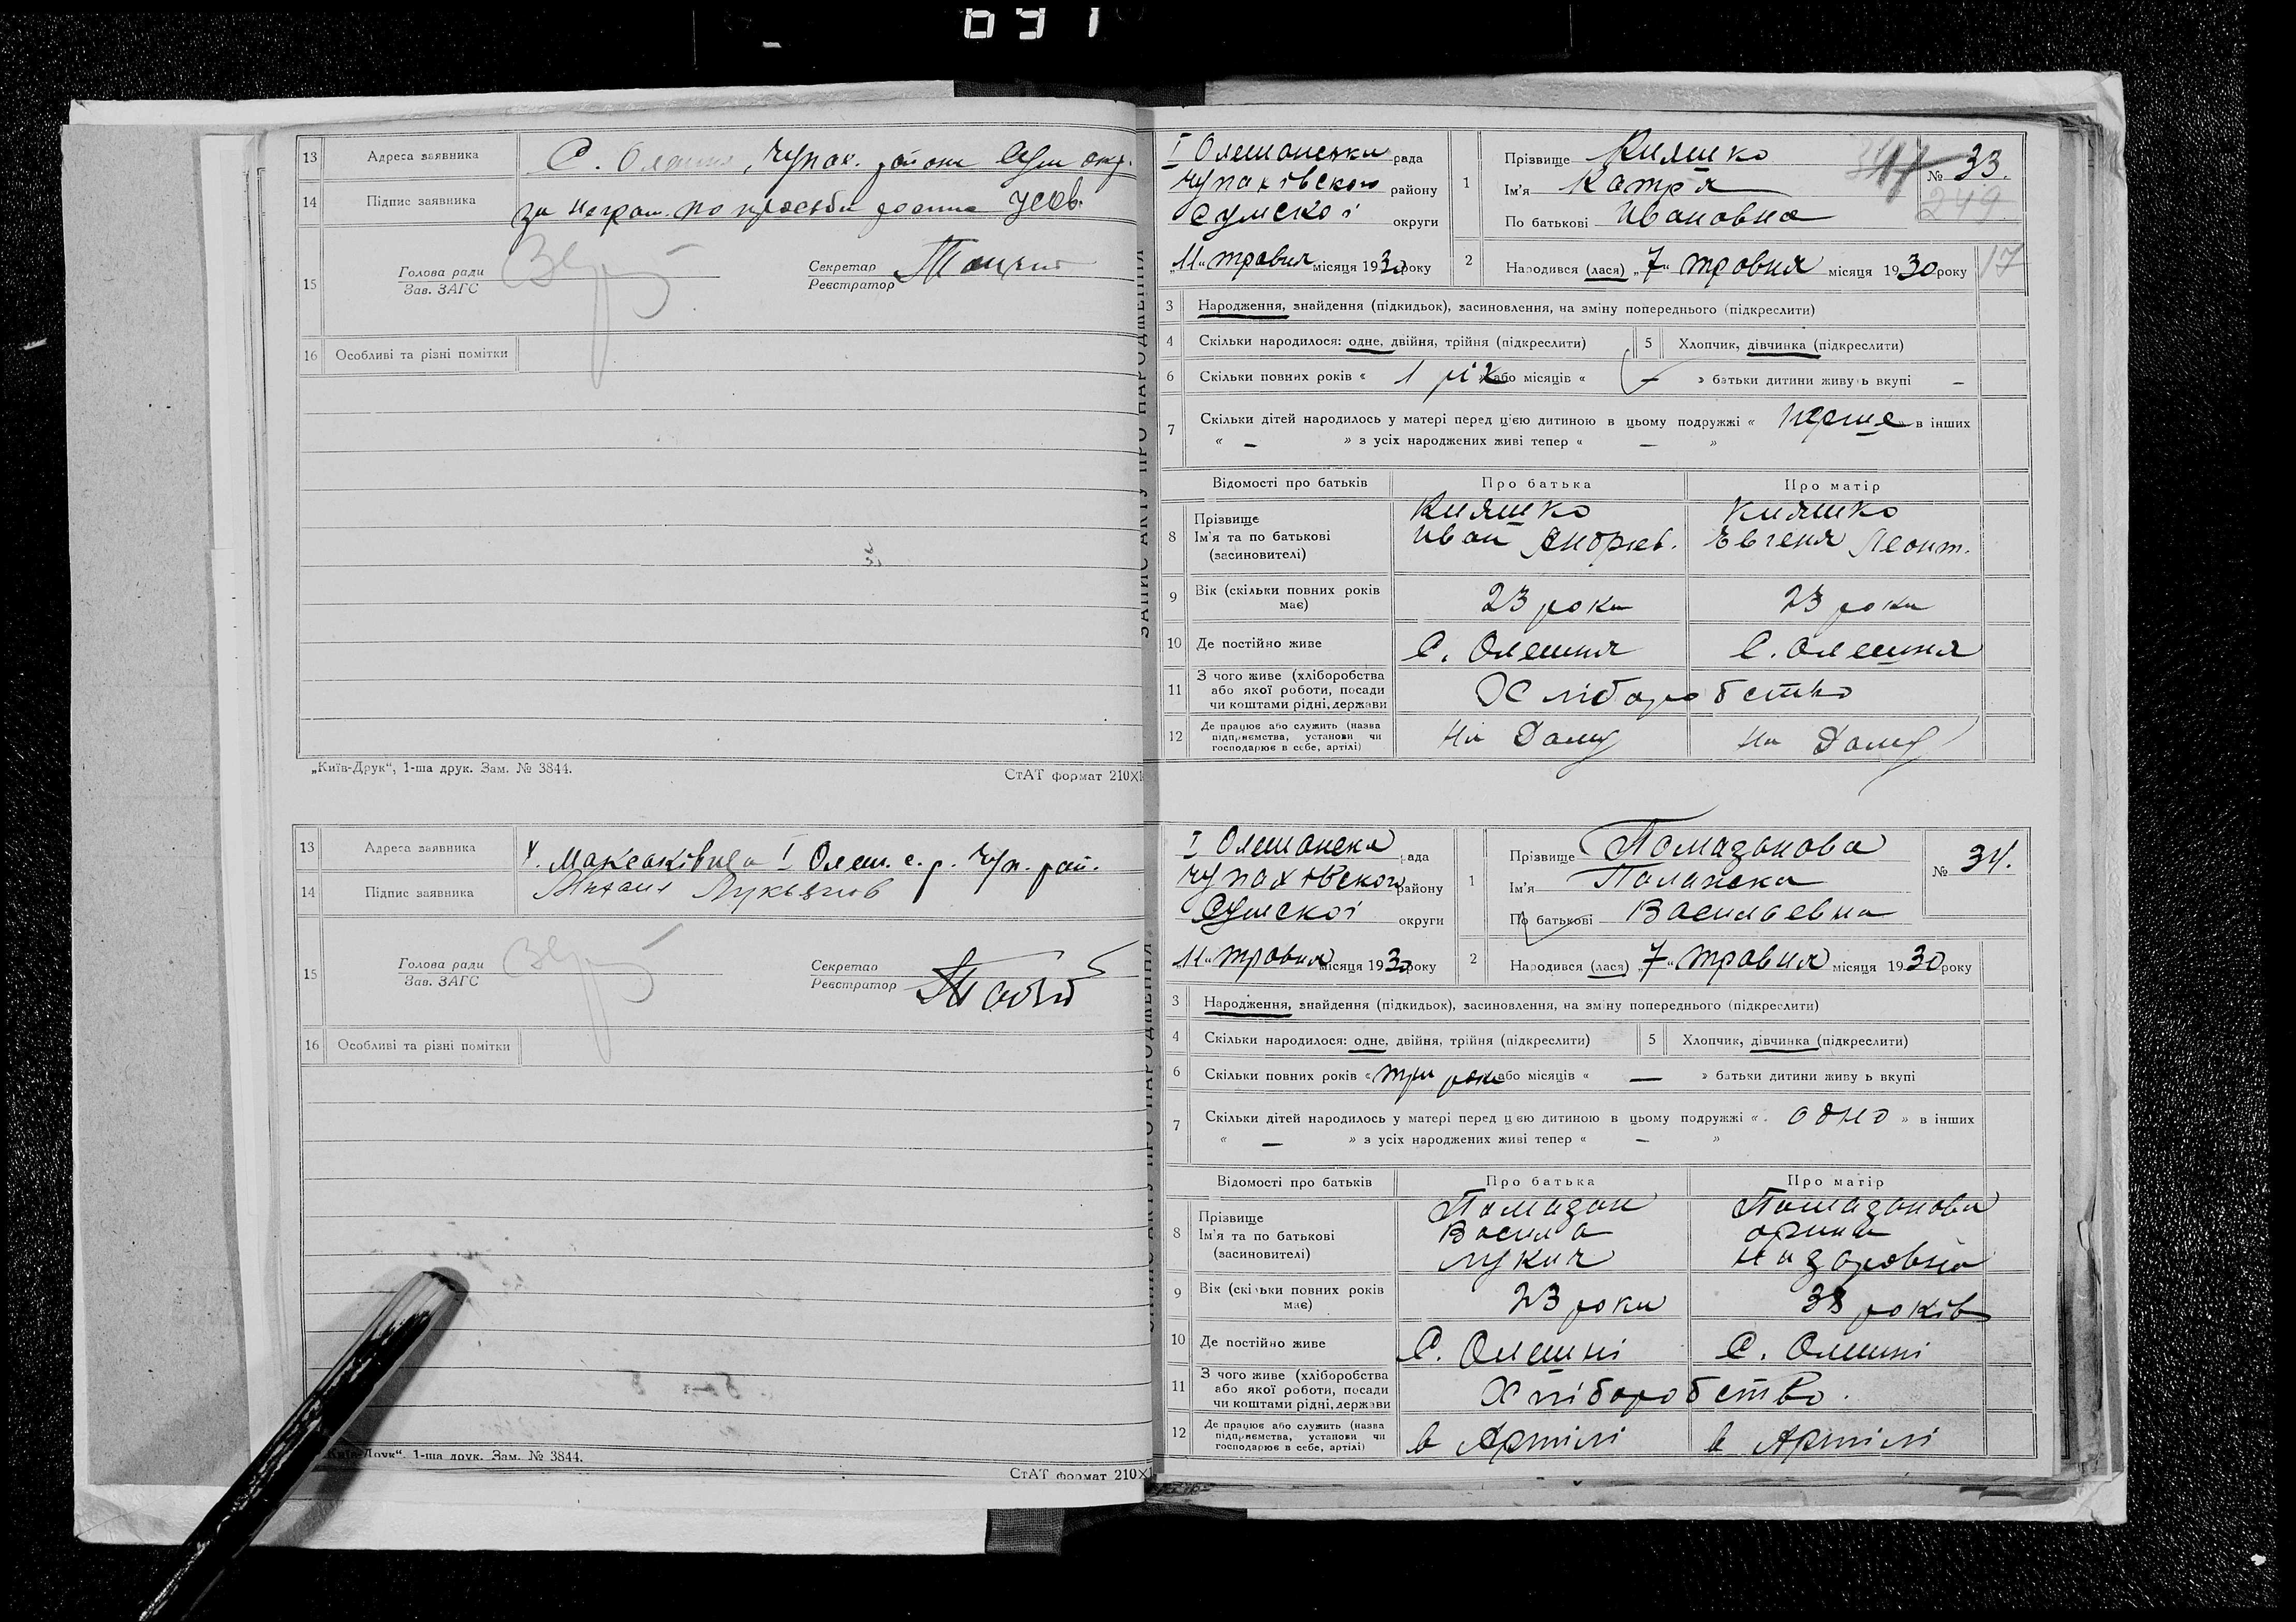 691
13 Адреса заявника С. Олешня, Чупах. района Сум окр.
14 Підпис заявника за неграм. по просьби росписа Усов.
15 Голова ради Зав. ЗАГС Секретар Реєстратор
16 Особливі та різні помітки
„Київ-Друк“, 1-ша друк. Зам. № 3844. СтАТ формат 210×
13 Адреса заявника х. Максаківщ І Олеш. с. р. Чуп. рай.
14 Підпис заявника Михаил Лукьянов
15 Голова ради Зав. ЗАГС Секретар Реєстратор
16 Особливі та різні помітки
Київ-Друк“, 1-ша друк. Зам. № 3844.
СтАТ формат 210×
ЗАПИС АКТУ ПРО НАРОДЖЕННЯ
І Олешанська рада
Чупахівскои району
Сумскоі округи
„11“ травня місяця 1930 року
1 Прізвище Кияшко
Ім'я Катря
По батькові Ивановна
№ 33.
249
17
2 Народився (лася) „7“ травня місяця 1930 року
3 Народження, знайдення (підкидьок), засиновлення, на зміну попереднього (підкреслити)
4 Скільки народилося: одне, двійня, трійня (підкреслити) 5 Хлопчик, дівчинка (підкреслити)
6 Скільки повних років « 1 рік » або місяців « — » батьки дитини живуть вкупі —
7 Скільки дітей народилось у матері перед цією дитиною в цьому подружжі « перше » в інших
« — » з усіх народжених живі тепер « — »
Відомості про батьків Про батька Про матір
8 Прізвище Кияшко Кияшко
Ім'я та по батькові Иван Андреев. Євгеня Леонт.
(засиновителі)
9 Вік (скільки повних років має) 23 роки 23 роки
10 Де постійно живе С. Олешня С. Олешня
11 З чого живе (хліборобства або якої роботи, посади чи коштами рідні, держави Хліборобство
12 Де працює або служить (назва підприємства, установи чи господарює в себе, артілі) На Дому На Дому
І Олешанска рада
Чупахівскои району
Сумскоі округи
„11“ травня місяця 1930 року
1 Прізвище Помазанова
Ім'я Палажка
По батькові Васильевна
№ 34.
2 Народився (лася) „7“ травня місяця 1930 року
3 Народження, знайдення (підкидьок), засиновлення, на зміну попереднього (підкреслити)
4 Скільки народилося: одне, двійня, трійня (підкреслити) 5 Хлопчик, дівчинка (підкреслити)
6 Скільки повних років « три роки або місяців « — » батьки дитини живу ь вкупі
7 Скільки дітей народилось у матері перед цією дитиною в цьому подружжі « одно » в інших
« — » з усіх народжених живі тепер « — »
Відомості про батьків Про батька Про матір
8 Прізвище Помазан Помазанова
Ім'я та по батькові Василь Орина
(засиновителі) Лукич Назаровна
9 Вік (скільки повних років має) 23 роки 38 років
10 Де постійно живе С. Олешні С. Олешні
11 З чого живе (хліборобства або якої роботи, посади чи коштами рідні, держави Хліборобство.
12 Де працює або служить (назва підприємства, установи чи господарює в себе, артілі) в Артілі в Артілі